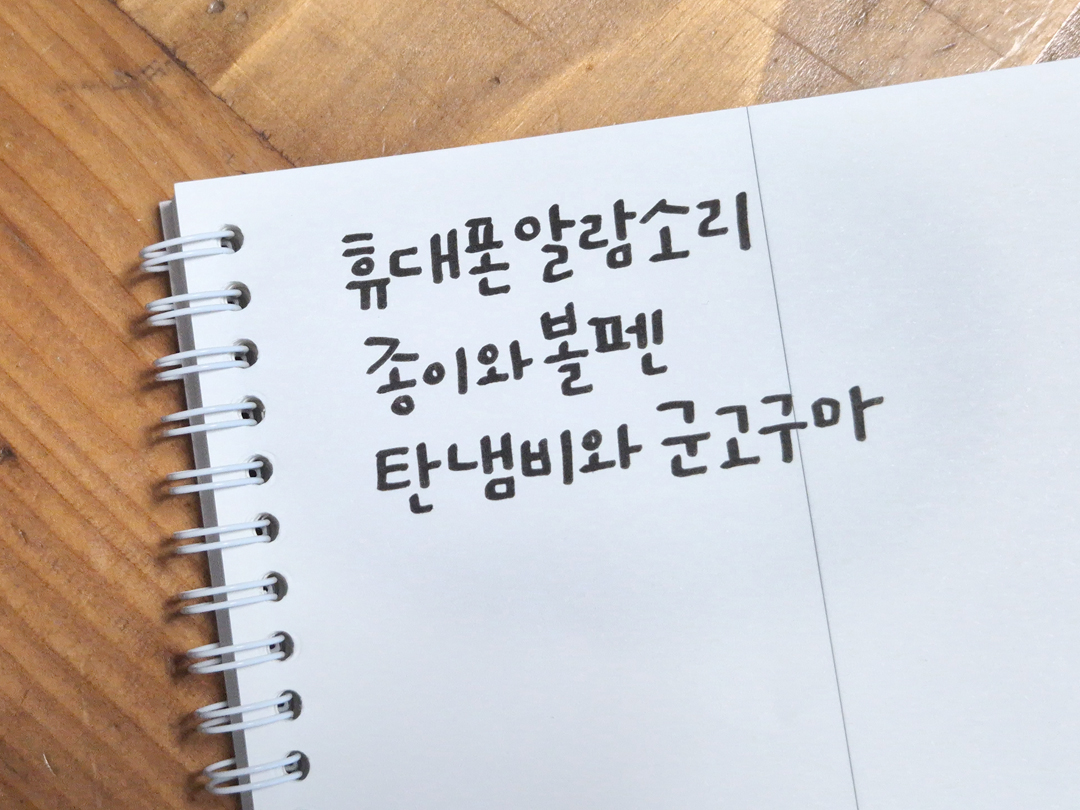 휴대폰 알람소리
종이와 볼펜
탄냄비와 군고구마